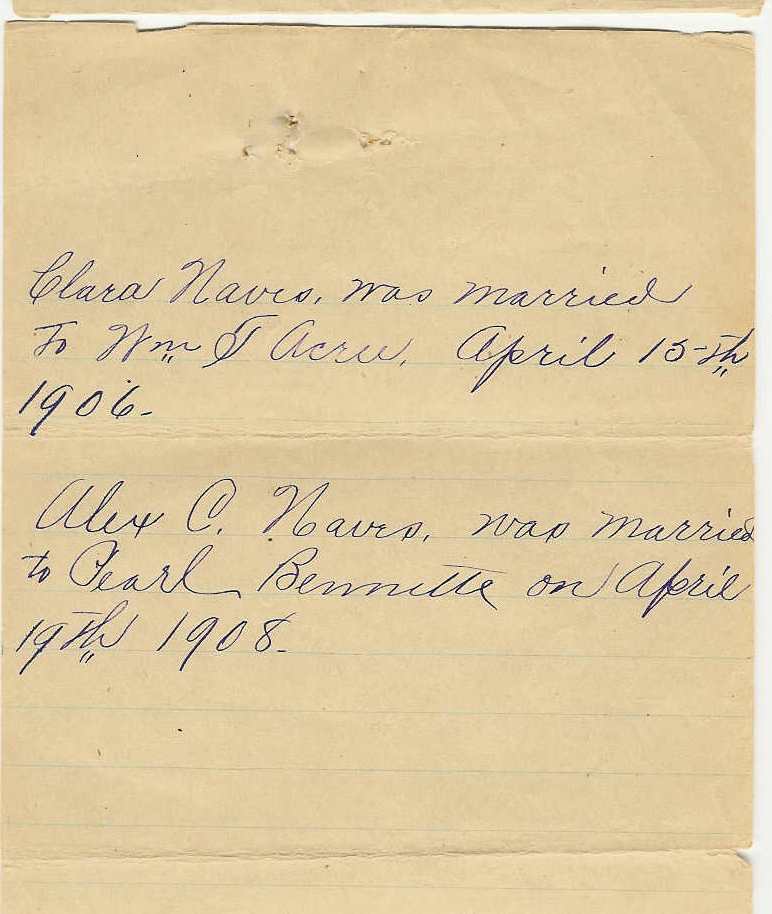 Clara Naves, was married
To Wm T Acree, April 15th
1906.
Alex C. Naves, was married
to Pearl Bennette on April
19th 1908.